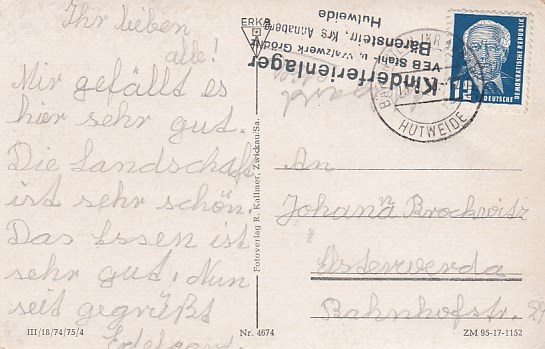 Ihr lieben
alle!
Mir gefällt es
hier sehr gut.
Die Landschaft
ist sehr schön.
Das Essen ist
sehr gut. Nun
seit gegrüßt
III/18/74/75/4
ERKA
Fotoverlag R. Kallmer, Zwickau/Sa.
Nr. 4674
Kinderferienlager
VEB Stahl- u. Walzwerk Gröditz
Bärenstein, Krs Annaberg
Hutweide
HUTWEIDE
DEUTSCHE
DEMOKRATISCHE REPUBLIK
12
An
Johann Brockwitz
Elsterwerda
Bahnhofstr. 29
ZM 95-17-1152